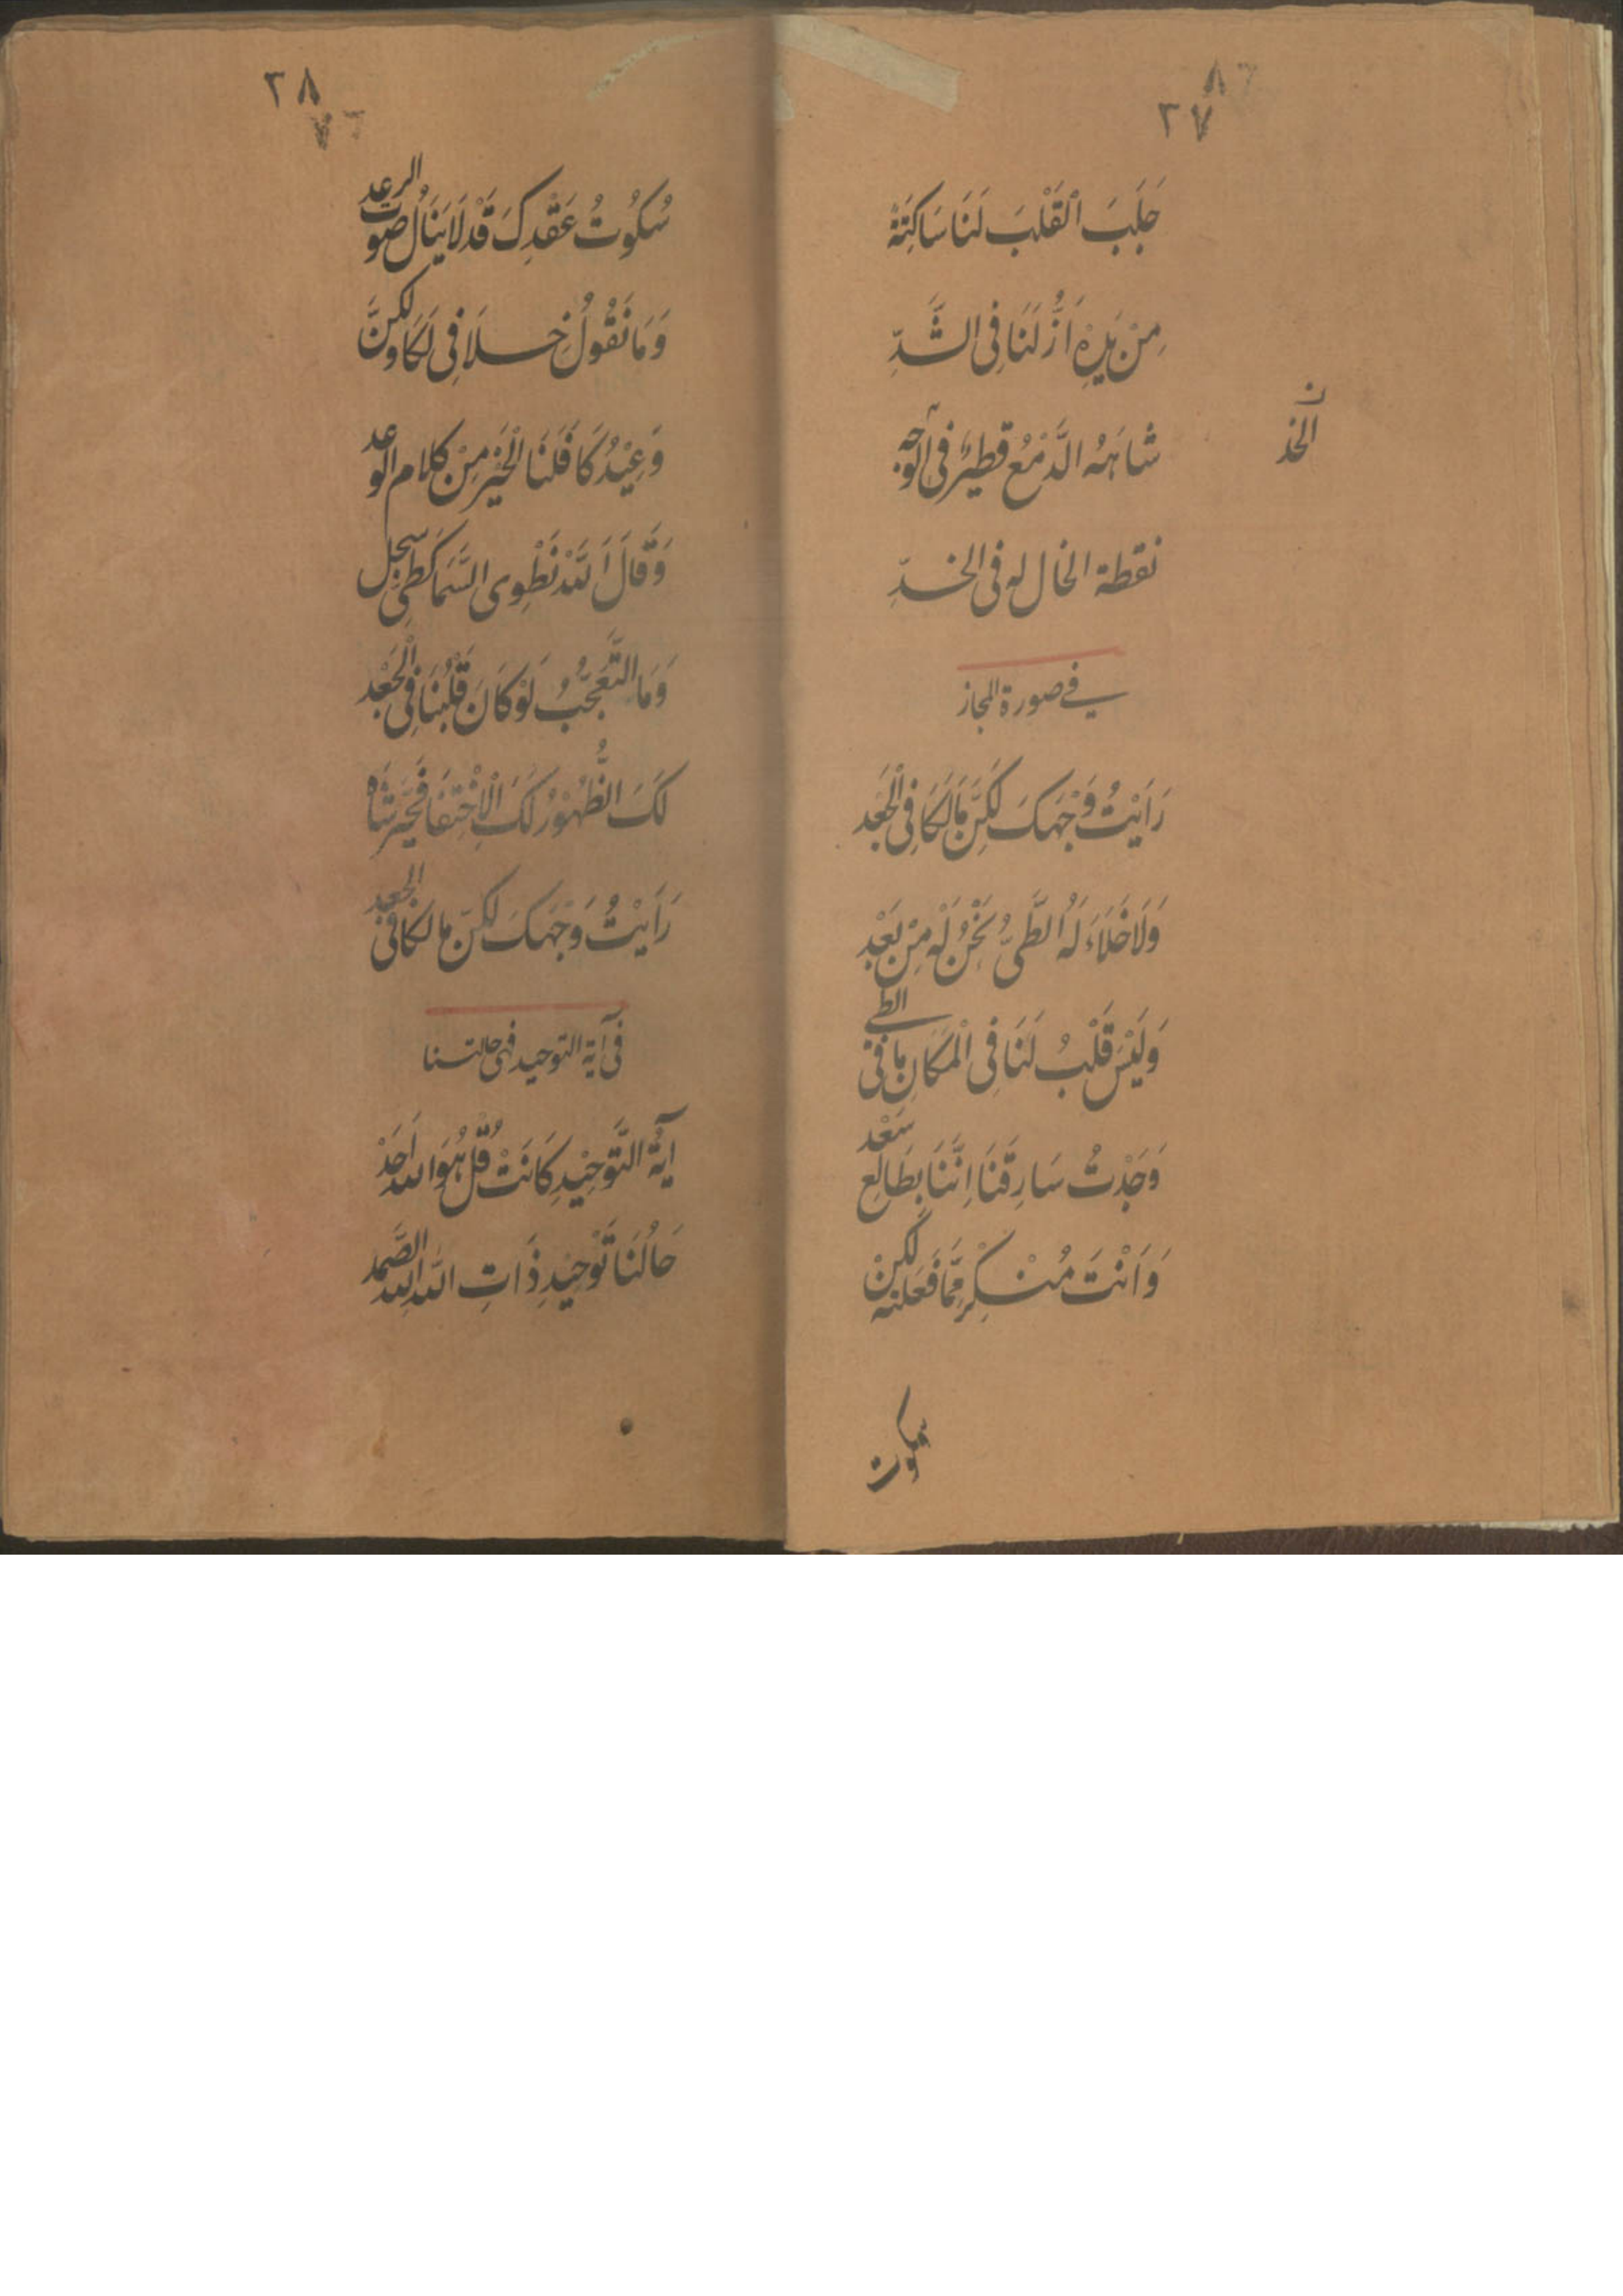 ٣٧
جَلَبَ الْقَلْبَ لَنَا سَاكِتَةْ
مِنْ يَدِهْ اَزُّ لَنَا فِى الشَّدِّ
شاهَهُ الدَّمْعُ قطيرٌ فى الوجه
الخد
نقطة الخال له فى الخدِّ
في صورة المجاز
رَاَيْتُ وَجْهَكَ لَكِنَّ مَا لَكَا فِى الْجَعْد
وَلَا خَلَاءَ لَهُ الطَّىُّ نَحْنُ لَهْ مِنْ بَعْدِ
وَلَيْسَ قَلْبُ لَنَا فِى الْمَكَانِ مَا فى الطى
وَجَدْتُ سَارِقَنَا اِنَّنَا بِطَالِعِ سَعْد
وَاَنْتَ مُنْكِرِ مِمَّا فَعَلته لكنْ
سكوت
٣٨
سُكُوتُ عَقْدِكَ قَدْ لَا يَنَالُ صوت الرعد
وَمَا نَقُولُ خِلَافِى لَكَا ولكنَّ
وَعِيْدُكَا فَلَنَا الْخَيْرُ مِنْ كلام الوعد
وَقَالَ اَللّٰهُ نَطْوِى السَّمَا كَطَىِّ سجل
وَمَا التَّعَجُّبُ لَوْ كَانَ قَلْبُنَا فِى الْجَعْد
لَكَ الظُّهُوْرُ لَكَ الْاِخْتِفَا فَحَيَّرَ شَاه
رَاَيْتُ وَجْهَكَ لكنّ ما لكا فى الجعد
فى آية التوحيد فهى حالتنا
آيَةُ التَّوحِيْدِ كَانَتْ قُلْ هُوَ الله اَحَدْ
حَالُنَا تَوْحِيْدِ ذَاتِ اللّه الله الصَّمد